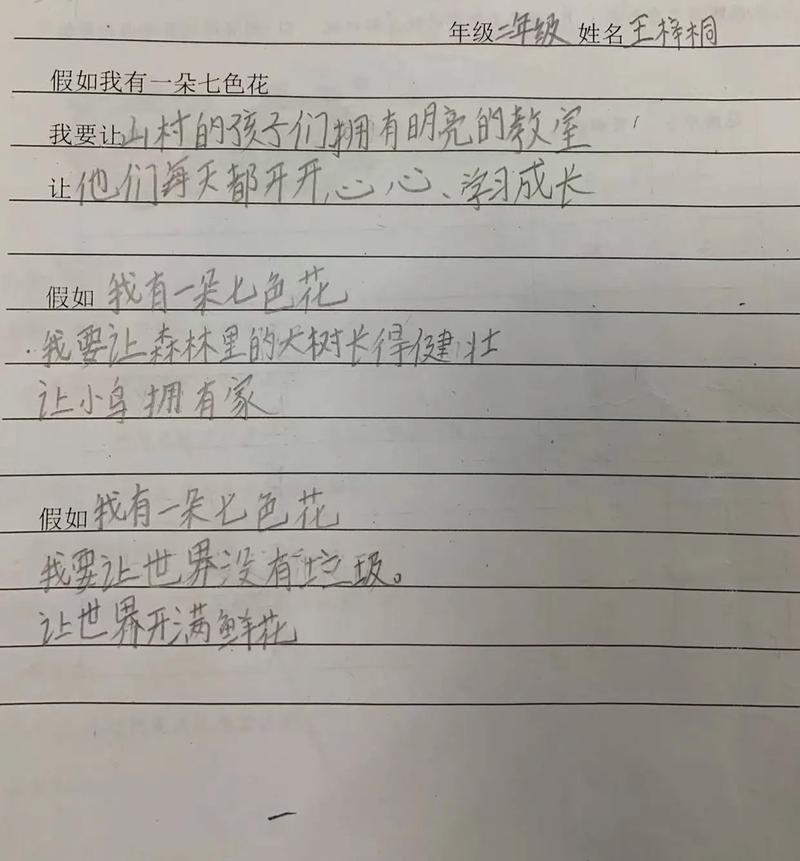 年级二年级 姓名王梓桐
假如我有一朵七色花
我要让山村的孩子们拥有明亮的教室
让他们每天都开开心心、学习成长
假如 我有一朵七色花
我要让森林里的大树长得健壮
让小鸟拥有家
假如我有一朵七色花
我要让世界没有垃圾。
让世界开满鲜花